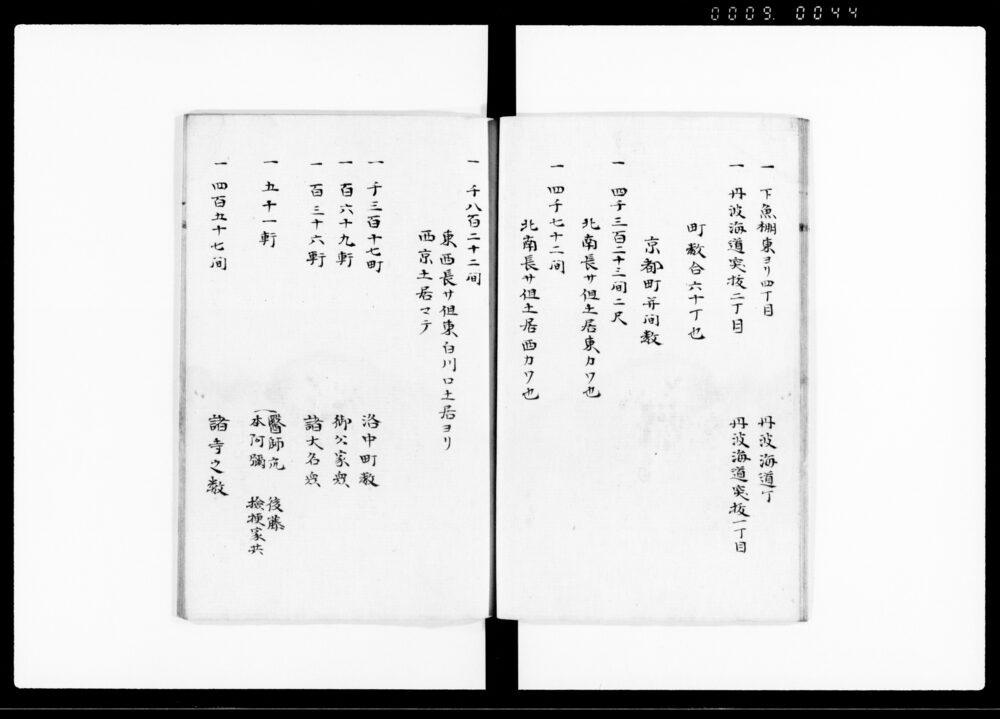 0009. 0044
一 下魚棚東ヨリ四丁目　丹波海道丁
一 丹波海道突抜二丁目　丹波海道突抜一丁目
町数合六十丁也
京都町并间数
一 四千三百二十三间二尺
北南長サ但土居東カワ也
一 四千七十二间
北南長サ但土居西カワ也
一 千八百二十二间
東西長サ但東白川口土居ヨリ
西京土居マテ
一 千三百十七町　洛中町数
一 百六十九軒　御公家衆
一 百三十六軒　諸大名衆
一 五十一軒　醫師 後藤
本阿彌 検挍家共
一 四百五十七间　諸寺之数